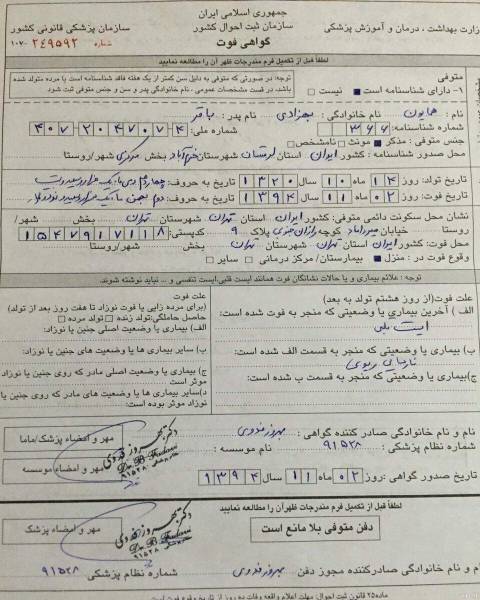 جمهوری اسلامی ایران
وزارت بهداشت، درمان و آموزش پزشکی
سازمان ثبت احوال کشور
سازمان پزشکی قانونی کشور
گواهی فوت
شماره ۲۴۹۵۹۲ ۱۰۷۰
لطفاً قبل از تکمیل فرم مندرجات ظهر آن را مطالعه نمایید
متوفی
۱- دارای شناسنامه است ■ نیست □
توجه: در صورتی که متوفی به دلیل سن کمتر از یک هفته فاقد شناسنامه است یا مرده متولد شده
باشد، در قست مشخصات عمومی، نام خانوادگی پدر و سن و جنس متوفی ثبت شود
نام: همایون نام خانوادگی: بهزادی نام پدر: باقر
شماره شناسنامه: ۳۶۶ شماره ملی:
جنس متوفی: مذکر ■ مونث □ نامشخص □
محل صدور شناسنامه: کشور ایران استان لرستان شهرستان خرم‌آباد بخش مرکزی شهر/روستا
تاریخ تولد: روز ۱۴ ماه ۱۰ سال ۱۳۲۰ تاریخ به حروف:
تاریخ فوت: روز ۰۲ ماه ۱۱ سال ۱۳۹۴ تاریخ به حروف:
نشان محل سکونت دائمی متوفی: کشور ایران استان تهران شهرستان تهران بخش شهر/
روستا خیابان میرداماد کوچه پلاک ۹ کدپستی: ۱۵۴۷۹۱۷۱۱۸
محل فوت: کشور ایران استان تهران شهرستان تهران بخش شهر/روستا
وقوع فوت در: منزل ■ بیمارستان/مرکز درمانی □ سایر □
توجه: علائم بیماری و یا حالات نشانگان فوت همانند ایست قلبی،ایست تنفسی و ... نباید نوشته شوند.
علت فوت(از روز هشتم تولد به بعد)
الف) آخرین بیماری یا وضعیتی که منجر به فوت شده است:
ایست قلبی
ب) بیماری یا وضعیتی که منجر به قسمت الف شده است:
نارسایی ریوی
ج) بیماری یا وضعیتی که منجر به قسمت ب شده است:
علت فوت
(برای مرده زایی یا فوت نوزاد تا هفت روز بعد از تولد)
حاصل حاملگی:تولد زنده □ تولد مرده □
الف) بیماری یا وضعیت اصلی جنین یا نوزاد:
ب) سایر بیماری ها یا وضعیت های جنین یا نوزاد:
ج) بیماری یا وضعیت اصلی مادر که روی جنین یا نوزاد
موثر است
د)سایر بیماری ها یا وضعیت های مادر که روی جنین یا
نوزاد موثر بوده است:
نام و نام خانوادگی صادر کننده گواهی:
شماره نظام پزشکی: ۹۱۵۲۸ نام موسسه:
تاریخ صدور گواهی: روز ۰۲ ماه ۱۱ سال ۱۳۹۴
مهر و امضاء پزشک/ماما
مهر و امضاء موسسه
۹۱۵۲۸
لطفاً قبل از تکمیل فرم مندرجات ظهرآن را مطالعه نمایید
دفن متوفی بلا مانع است
مهر و امضاء پزشک
۹۱۵۲۸
نام و نام خانوادگی صادرکننده مجوز دفن
شماره نظام پزشکی ۹۱۵۲۸